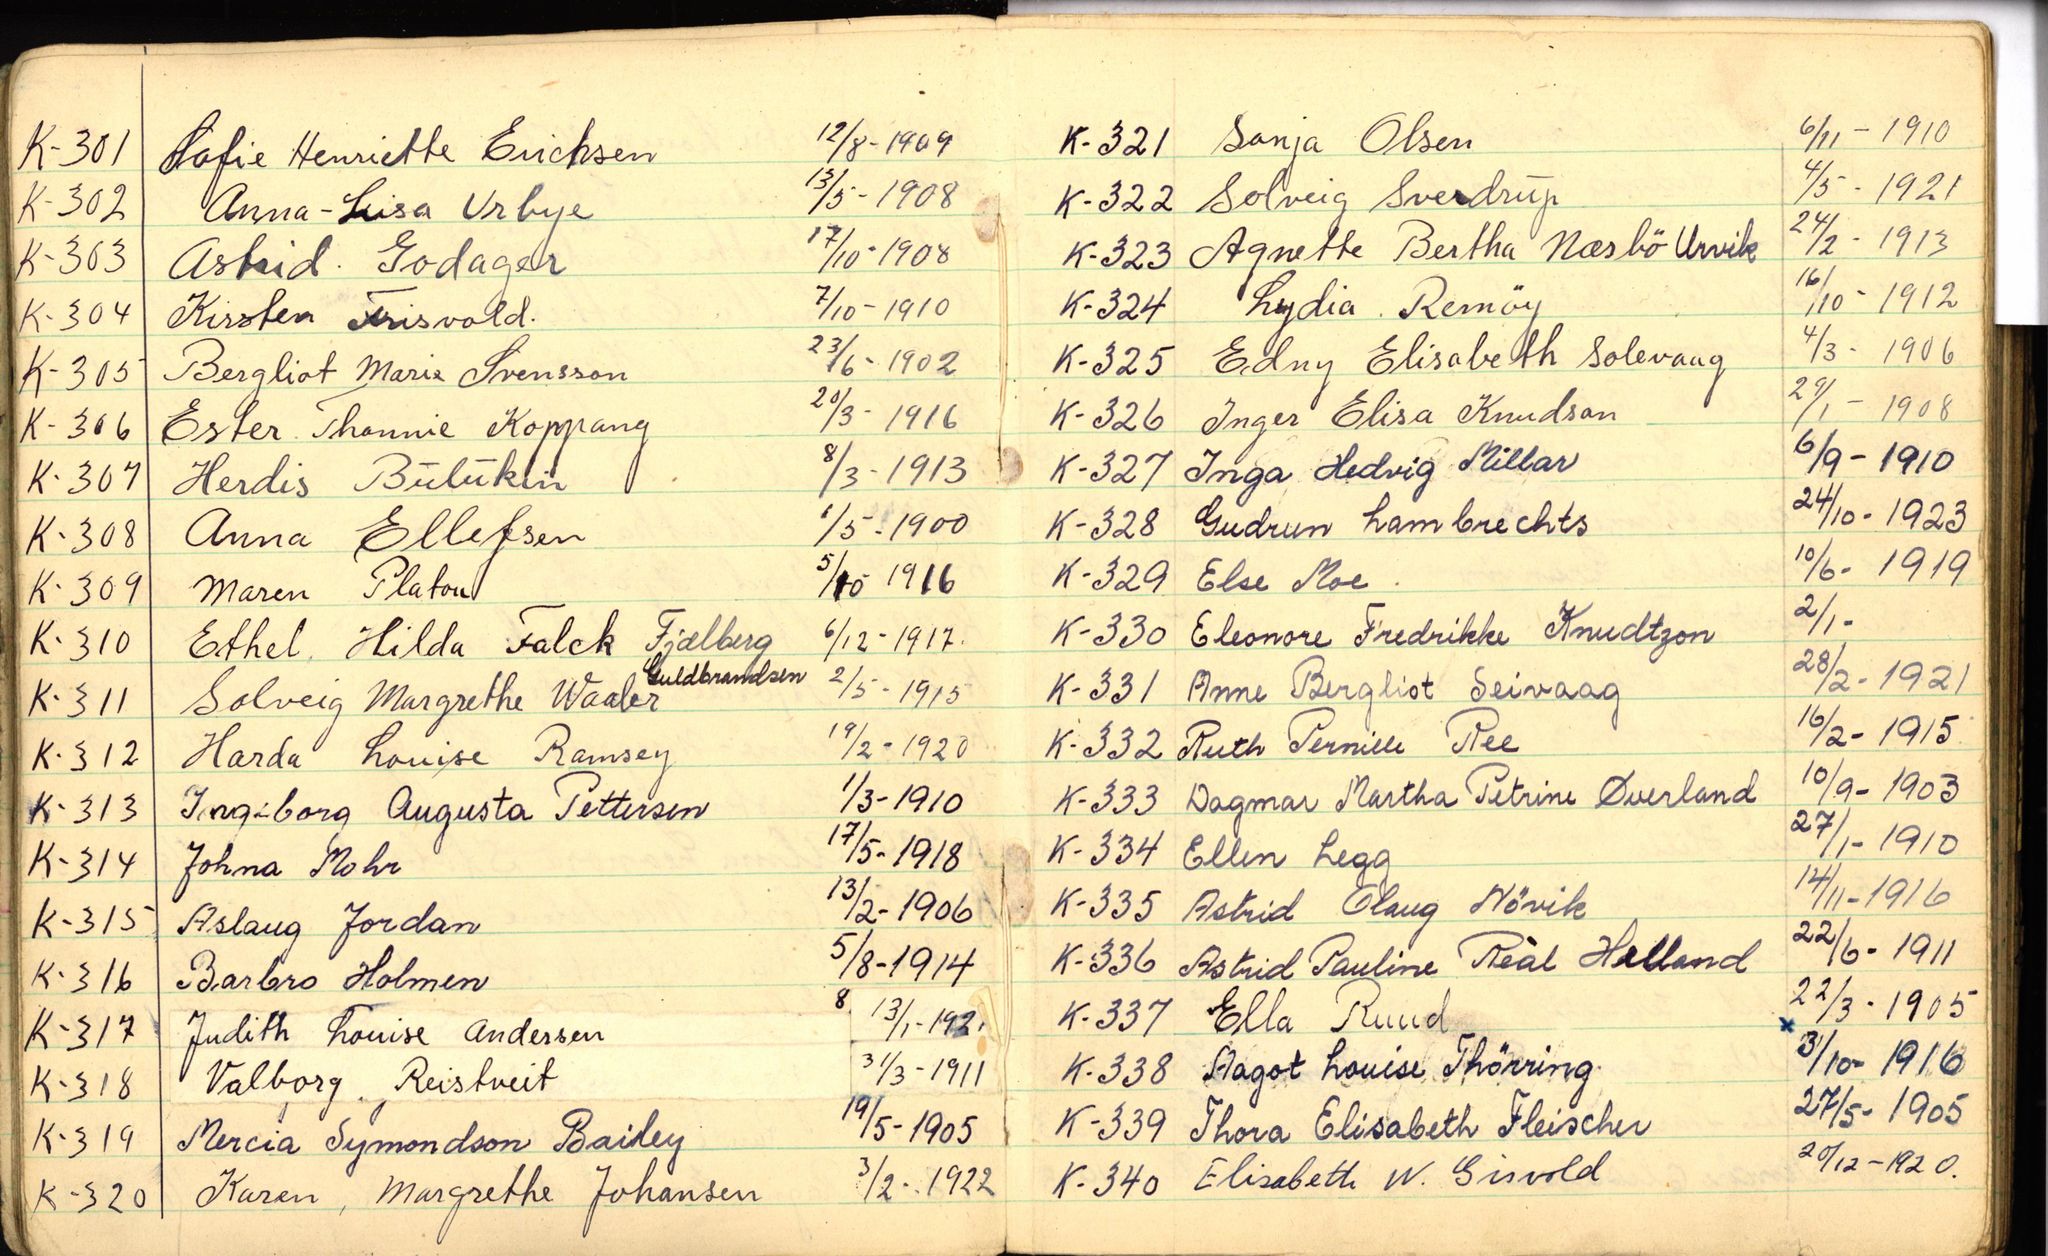 K-301 Sofie Henriette Erichsen 12/8-1909
K-302 Anna-Luisa Urbye 13/5-1908
K-303 Astrid. Godager 17/10-1908
K-304 Kirsten Frisvold. 7/10-1910
K-305 Bergliot Marie Svensson 23/6-1902
K-306 Ester Thonnie Koppang 20/3-1916
K-307 Herdis Bülükin 8/3-1913
K-308 Anna Ellefsen 1/5-1900
K-309 Maren Platou 5/10 1916
K-310 Ethel. Hilda Falck Fjelberg 6/12-1917.
Guldbrandsen
K-311 Solveig Margrethe Waaler 2/5-1915
K-312 Harda Louise Ramsey 19/2-1920
K-313 Ingeborg Augusta Pettersen 1/3-1910
K-314 Johna Mohr 17/5-1918
K-315 Aslaug Jordan 13/2-1906
K-316 Barbro Holmen 5/8-1914
K-317 Judith Louise Andersen 8 13/1-192
K-318 Valborg. Reistveit 31/3-1911
K-319 Mercia Symondson Bailey 19/5-1905
K-320 Karen, Margrethe Johansen 3/2-1922
K-321 Sonja Olsen 6/11-1910
K-322 Solveig Sverdrup 4/5-1921
K-323 Agnette Bertha Næsbö Urvik 24/2-1913
K-324 Lydia. Remöy 16/10-1912
K-325 Edny Elisabeth Solevaag 4/3-1906
K-326 Inger Elisa Knudson 29/1-1908
K-327 Inga Hedvig Millar 6/9-1910
K-328 Gudrun Lambrechts 24/10-1923
K-329 Else Moe. 10/6-1919
K-330 Eleonore Fredrikke Knudtzon 2/1-
K-331 Anne Bergliot Seivaag 28/2-1921
K-332 Ruth Pernille Ree 16/2-1915
K-333 Dagmar Martha Petrine Øverland 10/9-1903
K-334 Ellen Legg 27/1-1910
K-335 Astrid Olaug Növik 14/11-1916
K-336 Astrid Pauline Reàl Helland 22/6-1911
K-337 Ella Ruud 22/3-1905
K-338 Aagot Louise Thörring. x 3/10-1916
K-339 Thora Elisabeth Fleischer 27/5-1905
K-340 Elisabeth W. Gisvold 20/12-1920.